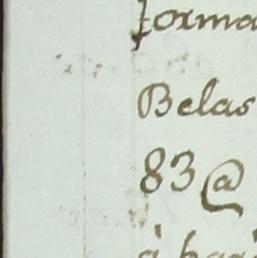 forma
Belas
83@